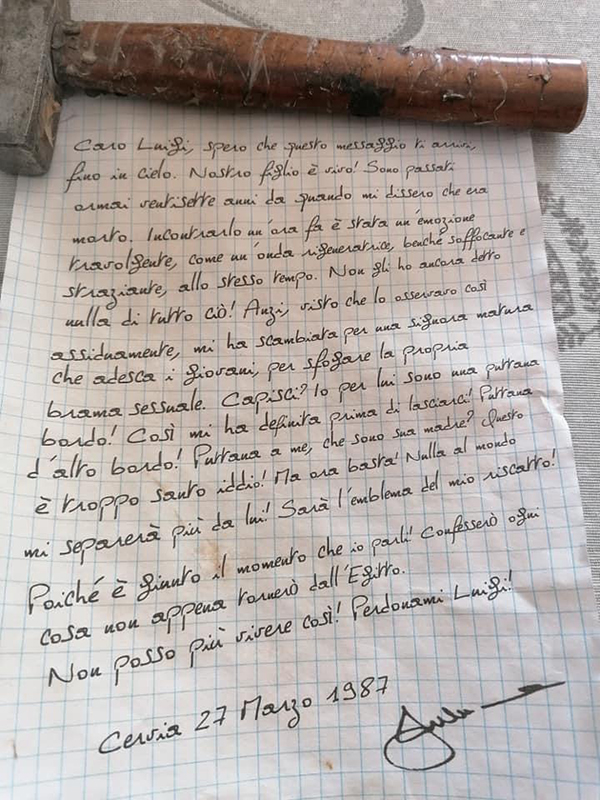 Caro Luigi, spero che questo messaggio ti arrivi,
fino in cielo. Nostro figlio è vivo! Sono passati
ormai ventisette anni da quando mi dissero che era
morto. Incontrarlo un'ora fa è stata un'emozione
travolgente, come un'onda rigeneratrice, benché soffocante e
straziante, allo stesso tempo. Non gli ho ancora detto
nulla di tutto ciò! Anzi, visto che lo osservavo così
assiduamente, mi ha scambiata per una signora matura
che adesca i giovani, per sfogare la propria
brama sessuale. Capisci? Io per lui sono una puttana
bordo! Così mi ha definita prima di lasciarci! Puttana
d'alto bordo! Puttana a me, che sono sua madre? Questo
è troppo santo iddio! Ma ora basta! Nulla al mondo
mi separerà più da lui! Sarà l'emblema del mio riscatto!
Poiché è giunto il momento che io parli! Confesserò ogni
cosa non appena tornerò dall'Egitto.
Non posso più vivere così! Perdonami Luigi!
Cervia 27 Marzo 1987